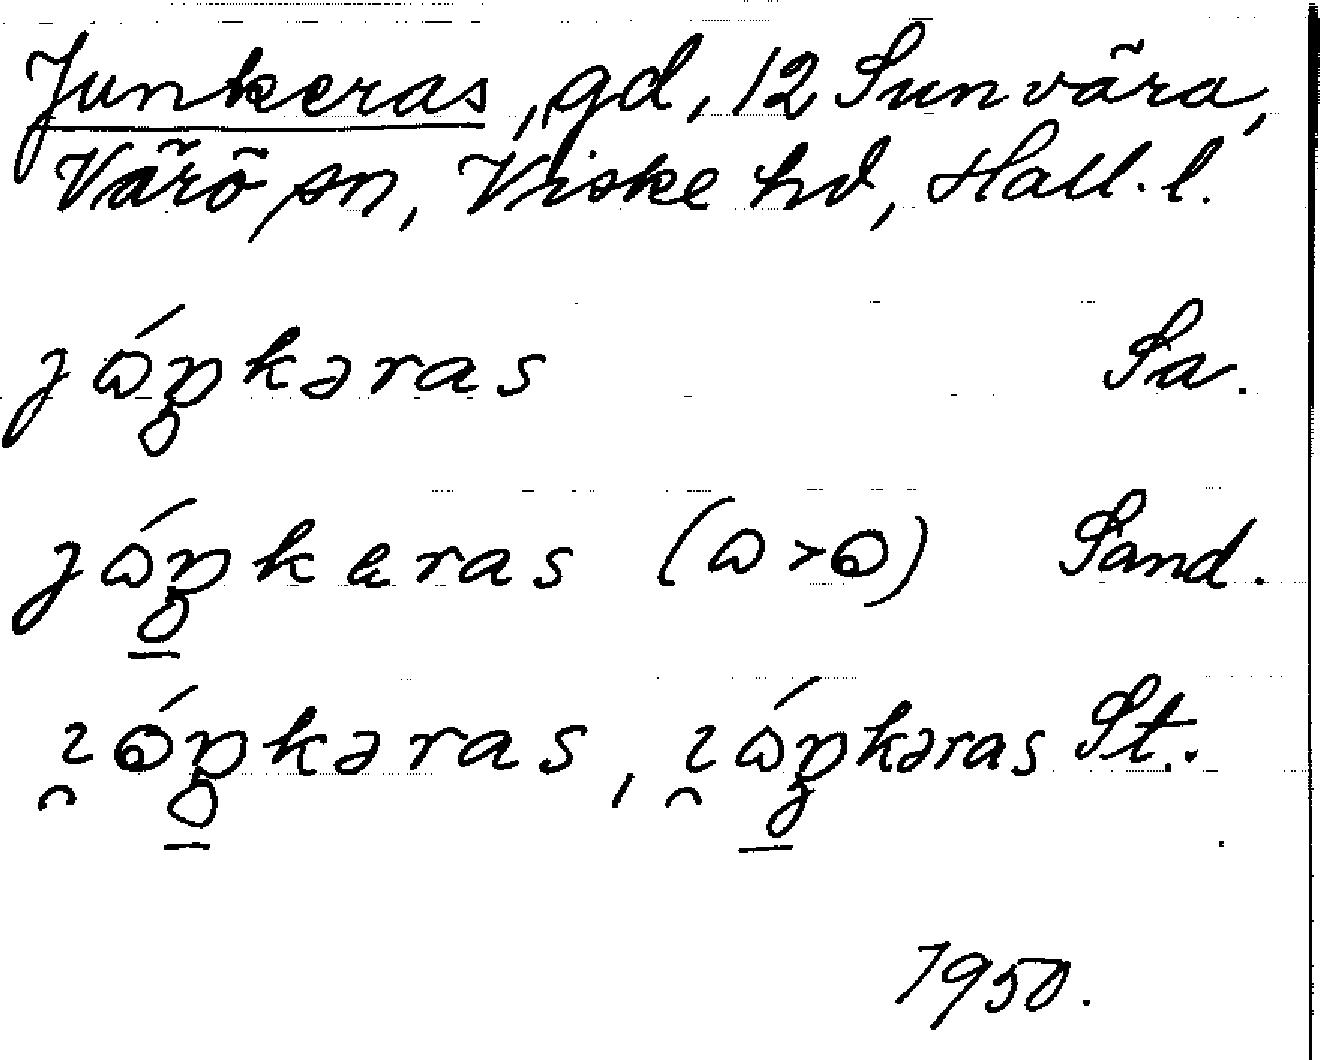 Junkeras, gd, 12 Sunvära,
Värö sn, Viske hd, Hall. l.
jɷ́ŋkəras Sa.
jɷ́ŋkeras (ɷ>ɵ) Sand.
ɵ́ŋkəras, ɷ́ŋkəras St.
1950.